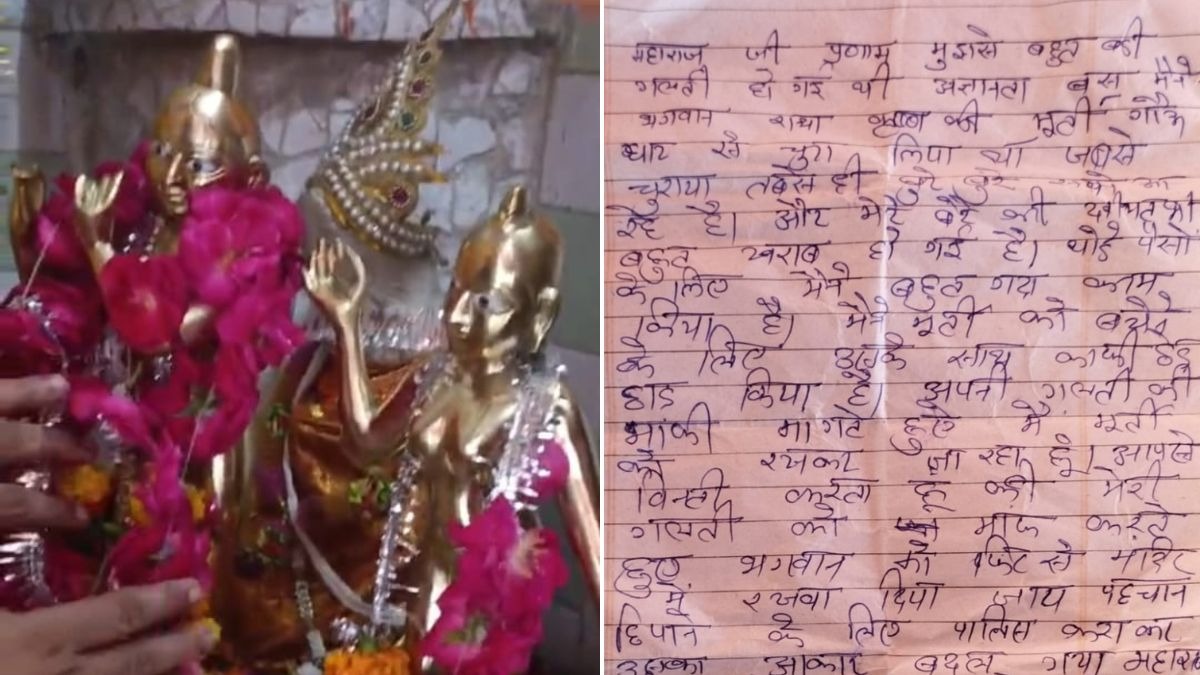 महाराज जी प्रणाम मुझसे बहुत की
गलती हो गई थी अज्ञानता बस मैंने
भगवान राधा कृष्ण की मूर्ती गौऊ
घाट से चुरा लिया था जबसे
चुराया तबसे ही बुरे बुरे
रहे है। और मेरे बेटे की तबीयत भी
बहुत खराब हो गई है। थोडे पैसो
के लिए मैने बहुत गंदा काम
किया है। मैने मूर्ती को बेचने
के लिए उसके साथ काफी छेड़
छाड़ किया है अपनी गलती की
माफी मागते हुए मै मूर्ती
को रखकर जा रहा हूं। आपसे
विनती करता हू की मेरी
गलती को माफ करते
हुए भगवान को फिर से मंदिर
में रखवा दिया जाय पहचान
छिपाने के लिए पालिस कराकर
उसका आकार बदल गया महाराज